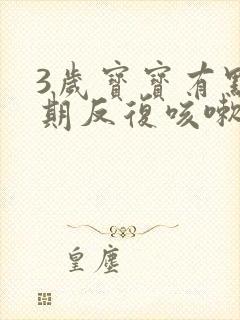 3歲寶寶有
期反復咳嗽
皇塵